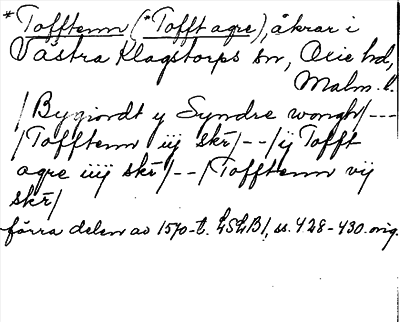 *Tofftenn (*Tofft agre), åkrar i
Västra Klagstorps sn, Oxie hd,
Malm. l.
/Bygiordt y Syndre wongh/---
/Tofftenn iij skr/--/ij Tofft
agre iiij skr/--/Tofftenn vij
skr/
förra delen av 1570-t. LSLB1, ss. 428-430. orig.